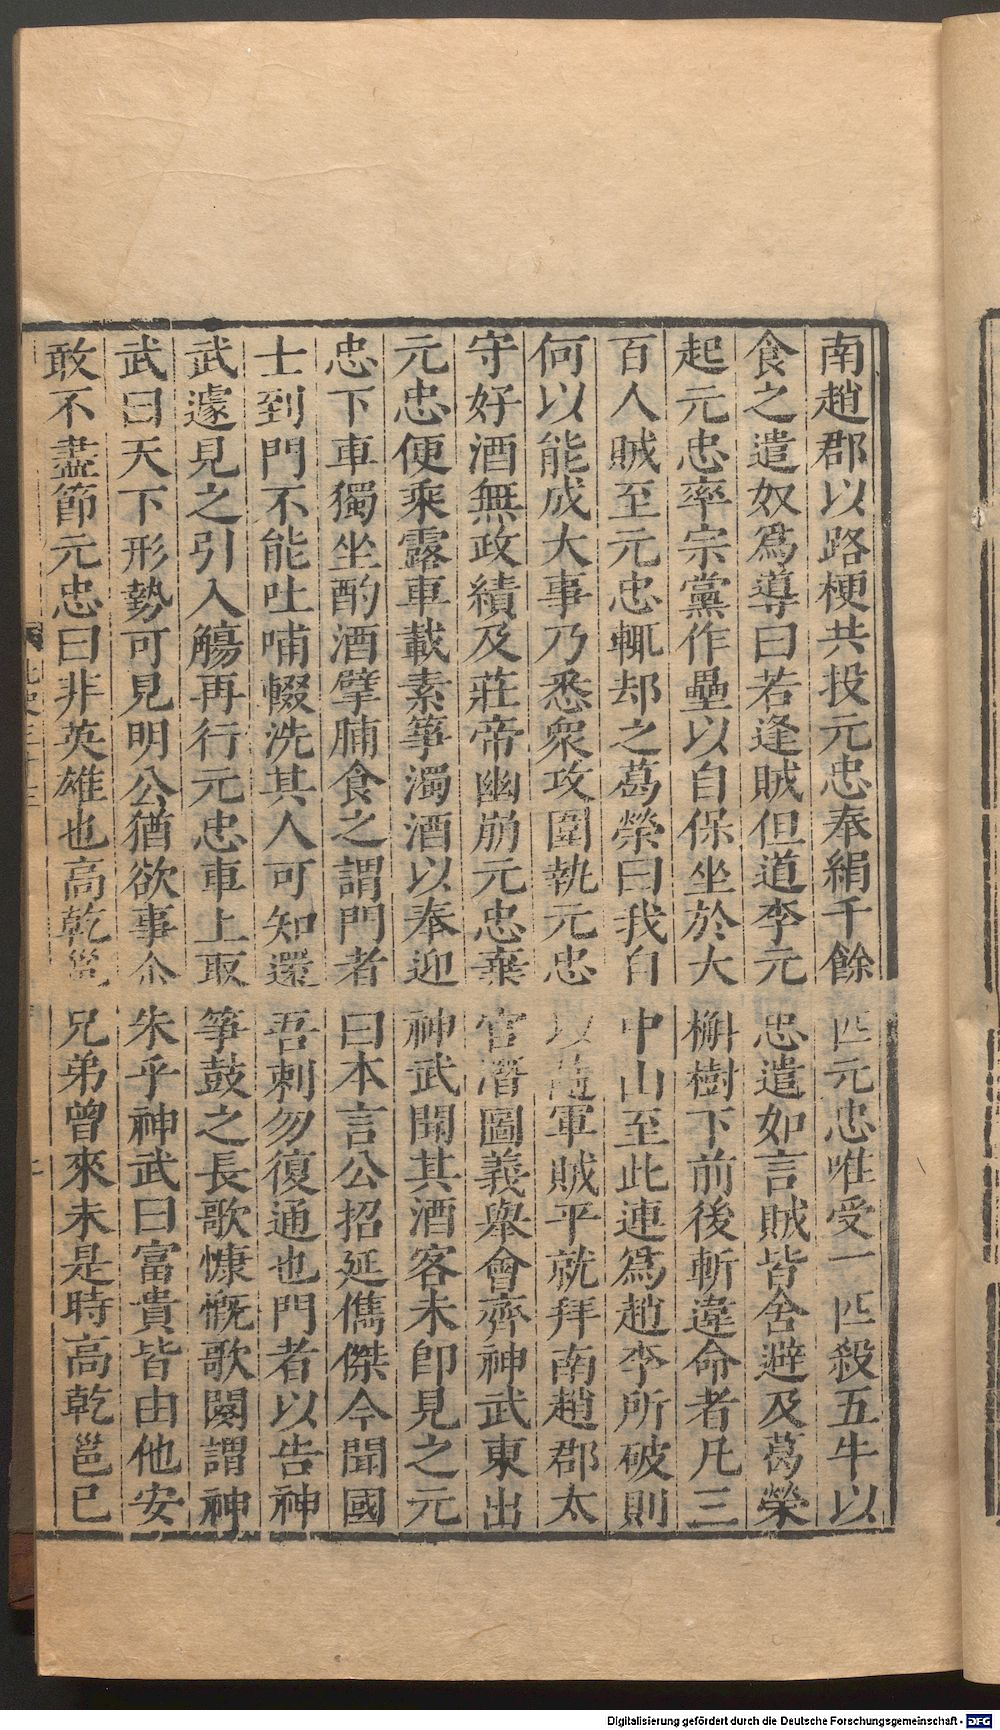 南趙郡以路梗共投元忠奉絹千餘匹元忠唯受一匹殺五牛以
食之遣奴爲導曰若逢賊但道李元忠遣如言賊皆舍避及葛榮
起元忠率宗黨作壘以自保坐於大槲樹下前後斬違命者凡三
百人賊至元忠輒却之葛榮曰我自中山至此連爲趙李所破則
何以能成大事乃悉衆攻圍執元忠以隨軍賊平就拜南趙郡太
守好酒無政績及莊帝幽崩元忠棄官潛圖義舉會齊神武東出
元忠便乘露車載素箏濁酒以奉迎神武聞其酒客未卽見之元
忠下車獨坐酌酒擘脯食之謂門者曰本言公招延儁傑今聞國
士到門不能吐哺輟洗其人可知還吾刺勿復通也門者以告神
武遽見之引入觴再行元忠車上取箏鼓之長歌慷慨歌闋謂神
武曰天下形勢可見明公猶欲事尒朱乎神武曰富貴皆由他安
敢不盡節元忠曰非英雄也高乾邕兄弟曾來未是時高乾邕已
北史三十三
Digitalisierung gefördert durch die Deutsche Forschungsgemeinschaft - DFG